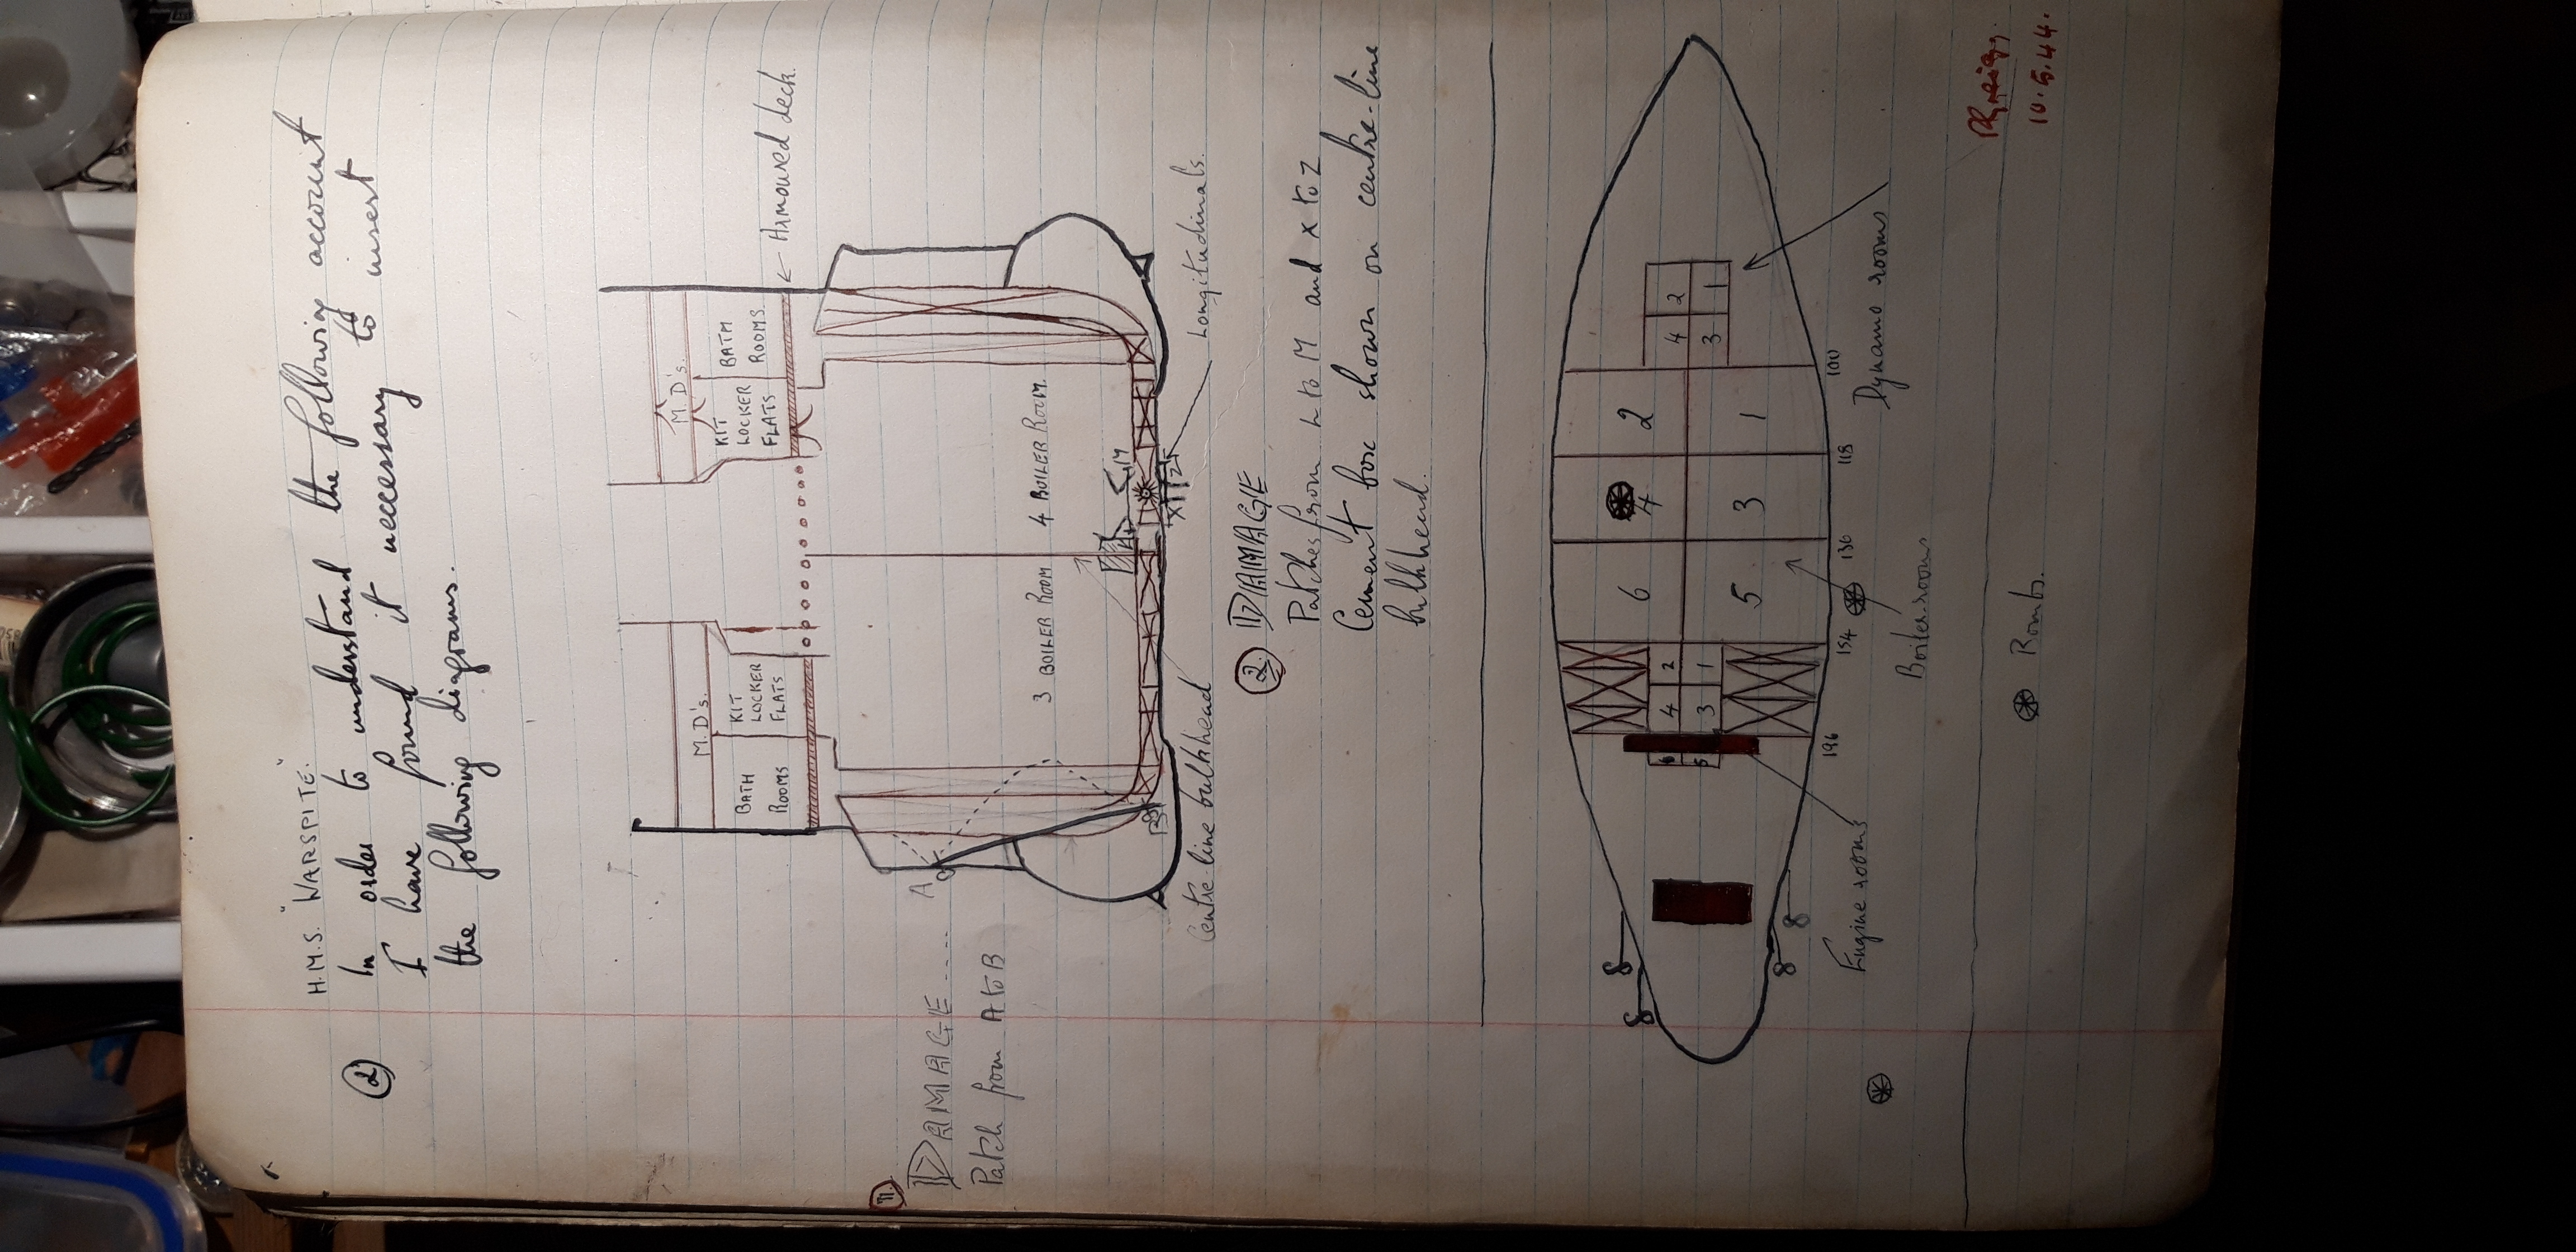 H.M.S. "WARSPITE."
② In order to understand the following account
I have found it neccessary to insert
the following diagrams.
M.D's.
M.D's.
BATH
ROOMS
KIT
LOCKER
FLATS
KIT
LOCKER
FLATS
BATH
ROOMS
← Armoured deck.
①
DAMAGE ....
Patch from A to B
A
3 BOILER ROOM
4 BOILER ROOM.
L M
B
X Z
Centre-line bulkhead
Longitudinals.
② DAMAGE
Patches from L to M and X to Z
Cement box shown on centre-line
bulkhead.
6 4 2
6 4 2
4 2
5 3 1
3 1
5 3 1
196 154 136 118 100
Engine rooms
Boiler-rooms
Dynamo rooms
Bombs.
10.5.44.